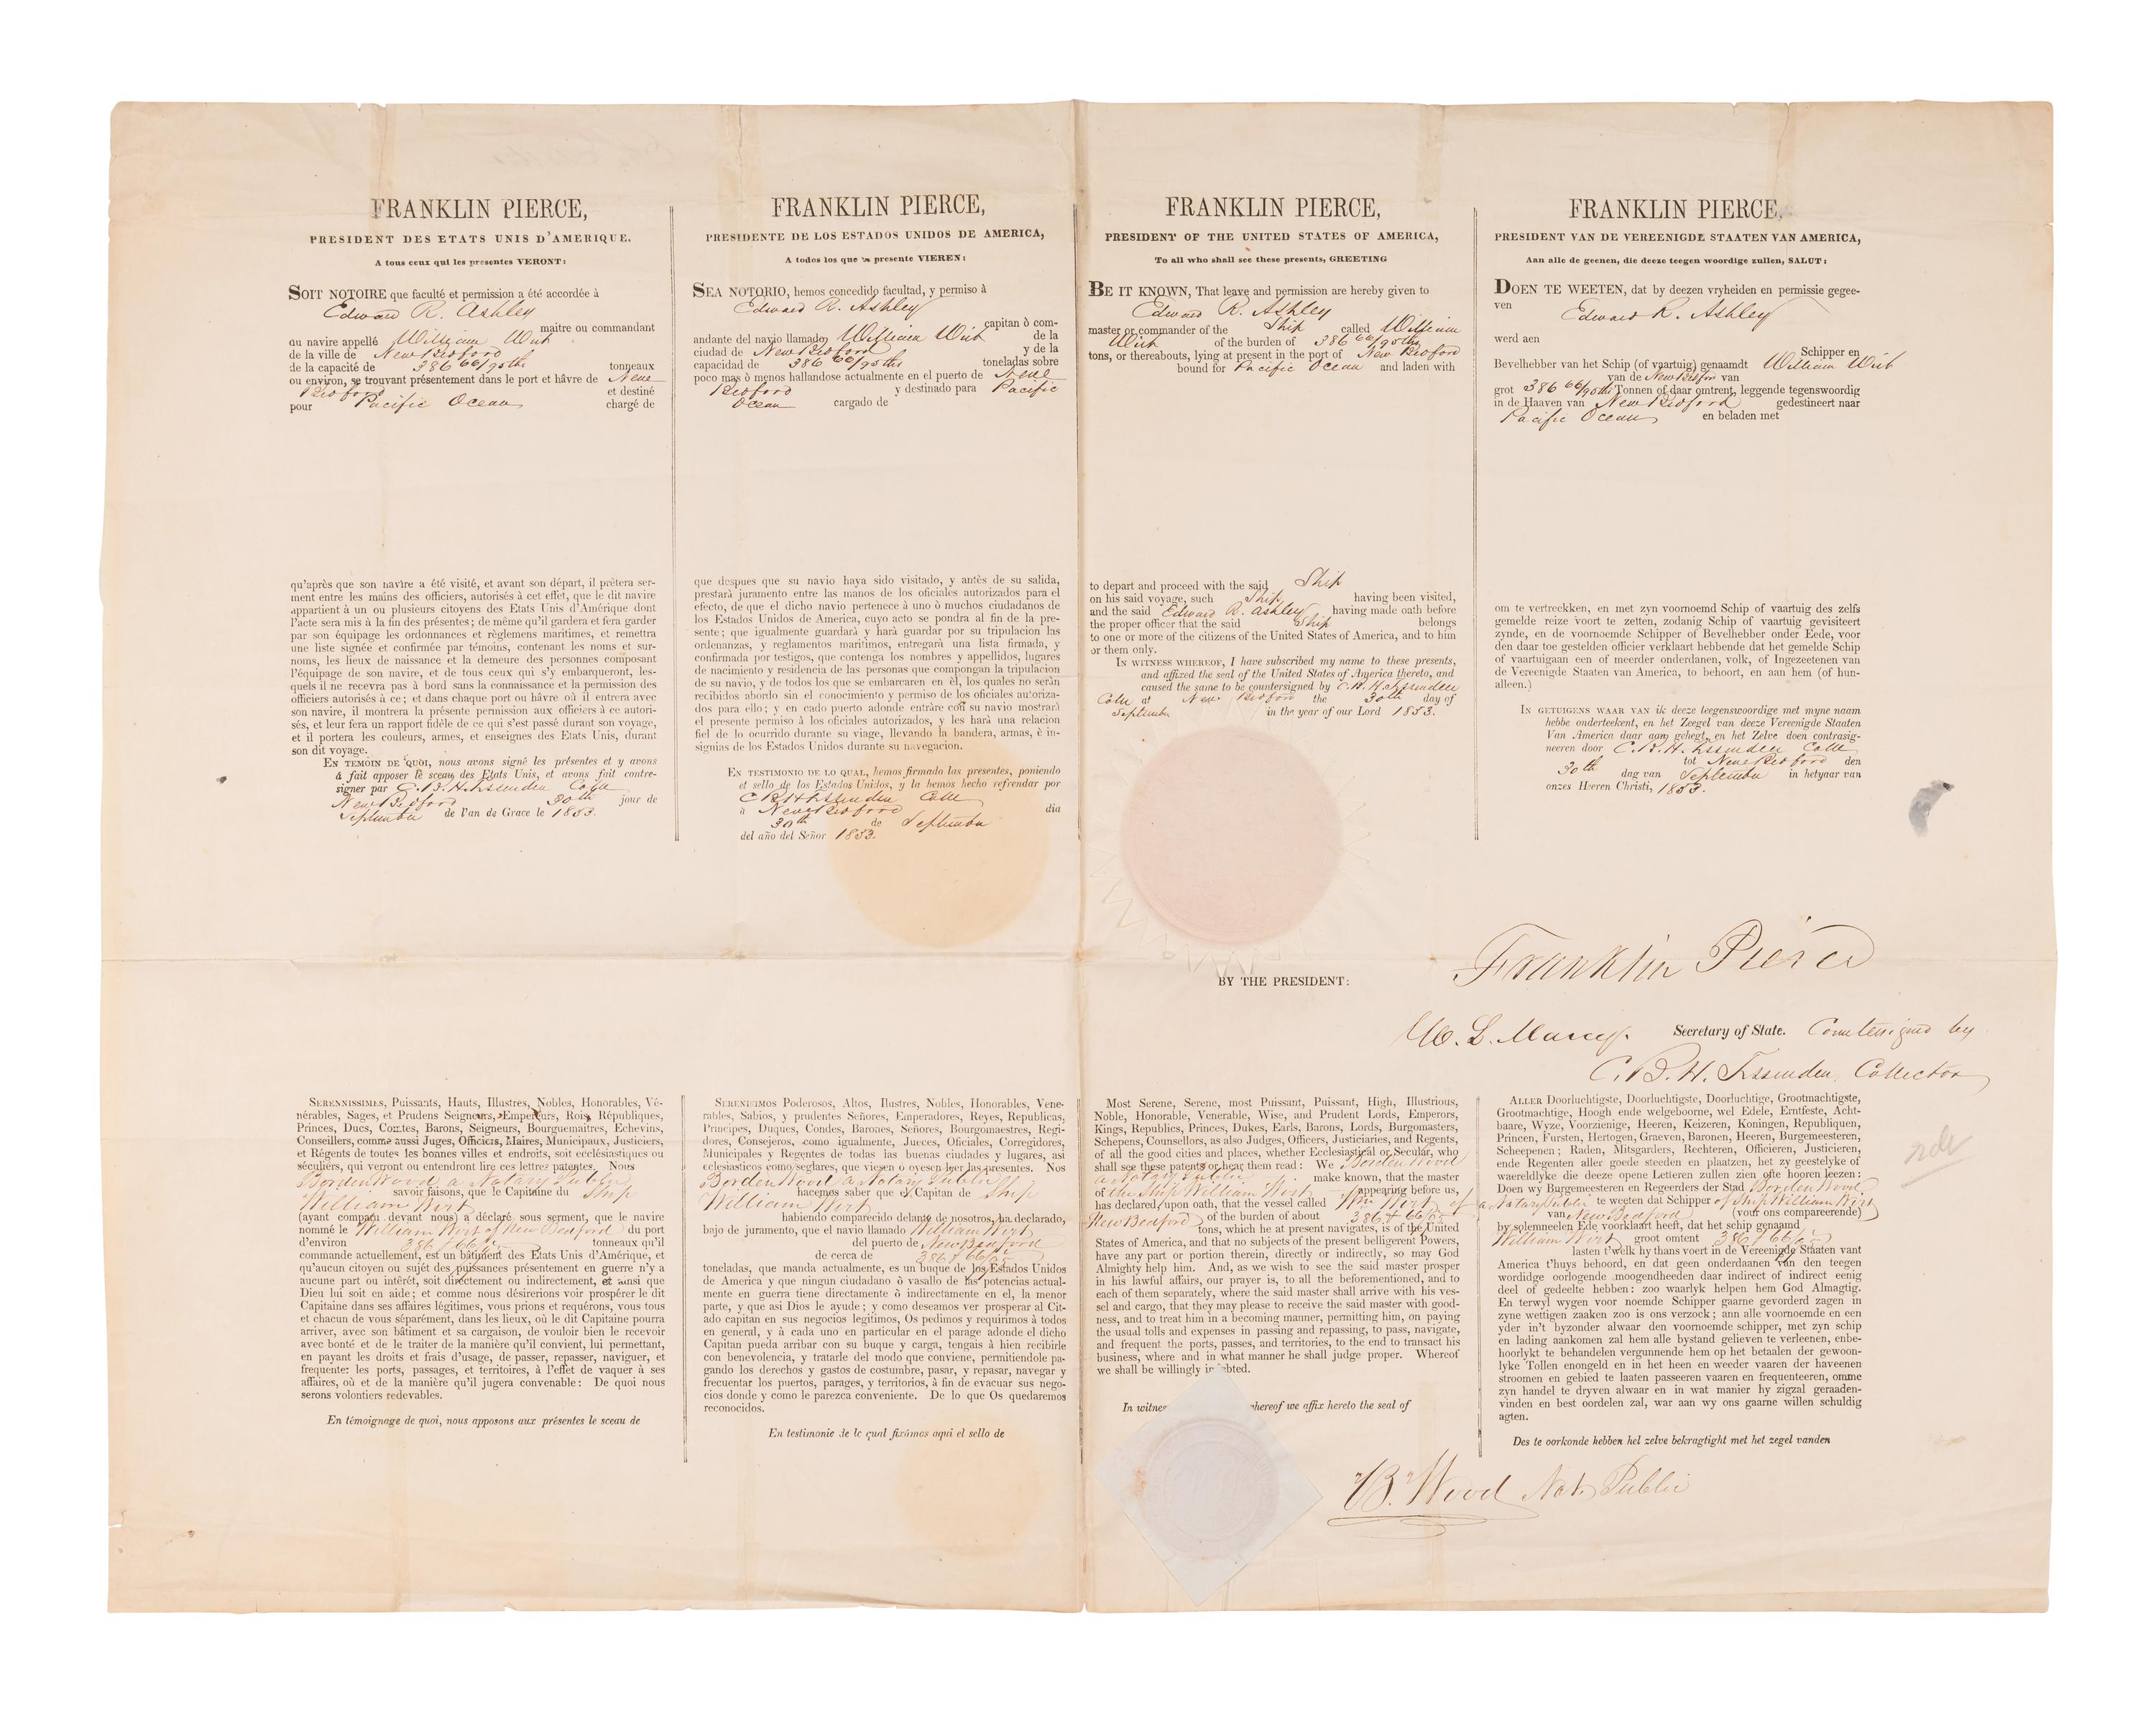 FRANKLIN PIERCE,
PRESIDENT DES ETATS UNIS D'AMERIQUE.
A tous ceux qui les presentes VERONT:
SOIT NOTOIRE que faculté et permission a été accordée à
Edward R. Ashley
maitre ou commandant
au navire appellé William Wirt
de la ville de New Bedford
de la capacité de 386 66/95ths tonneaux
ou environ, se trouvant présentement dans le port et hâvre de New
Bedford et destiné
pour Pacific Ocean chargé de
qu'après que son navire a été visité, et avant son départ, il prêtera ser-
ment entre les mains des officiers, autorisés à cet effet, que le dit navire
appartient à un ou plusieurs citoyens des Etats Unis d'Amérique dont
l'acte sera mis à la fin des présentes; de même qu'il gardera et fera garder
par son équipage les ordonnances et règlemens maritimes, et remettra
une liste signée et confirmée par témoins, contenant les noms et sur-
noms, les lieux de naissance et la demeure des personnes composant
l'équipage de son navire, et de tous ceux qui s'y embarqueront, les-
quels il ne recevra pas à bord sans la connaissance et la permission des
officiers autorisés à ce; et dans chaque port ou hâvre où il entrera avec
son navire, il montrera la présente permission aux officiers à ce autori-
sés, et leur fera un rapport fidèle de ce qui s'est passé durant son voyage,
et il portera les couleurs, armes, et enseignes des Etats Unis, durant
son dit voyage.
EN TEMOIN DE QUOI, nous avons signé les présentes et y avons
á fait apposer le sceau des Etats Unis, et avons fait contre-
signer par C. B. H. Fessenden Colle
New Bedford 30th jour de
September de l'an de Grace le 1853.
FRANKLIN PIERCE,
PRESIDENTE DE LOS ESTADOS UNIDOS DE AMERICA,
A todos los que la presente VIEREN:
SEA NOTORIO, hemos concedido facultad, y permiso à
Edward R. Ashley
capitan ò com-
andante del navio llamado William Wirt de la
ciudad de New Bedford y de la
capacidad de 386 66/95ths toneladas sobre
poco mas ò menos hallandose actualmente en el puerto de New
Bedford y destinado para Pacific
Ocean cargado de
que despues que su navio haya sido visitado, y antès de su salida,
prestarà juramento entre las manos de los oficiales autorizados para el
efecto, de que el dicho navio pertenece à uno ò muchos ciudadanos de
los Estados Unidos de America, cuyo acto se pondra al fin de la pre-
sente; que igualmente guardarà y harà guardar por su tripulacion las
ordenanzas, y reglamentos maritimos, entregarà una lista firmada, y
confirmada por testigos, que contenga los nombres y appellidos, lugares
de nacimiento y residencia de las personas que compongan la tripulacion
de su navio, y de todos los que se embarcaren en èl, los quales no seràn
recibidos abordo sin el conocimiento y permiso de los oficiales autoriza-
dos para ello; y en cado puerto adonde entràre con su navio mostrarà
el presente permiso à los oficiales autorizados, y les harà una relacion
fiel de lo ocurrido durante su viage, llevando la bandera, armas, è in-
signias de los Estados Unidos durante su navegacion.
EN TESTIMONIO DE LO QUAL, hemos firmado las presentes, poniendo
et sello de los Estados Unidos, y la hemos hecho refrendar por
C B H Fessenden Colle
à New Bedford dia
30th de September
del año del Señor 1853.
FRANKLIN PIERCE,
PRESIDENT OF THE UNITED STATES OF AMERICA,
To all who shall see these presents, GREETING
BE IT KNOWN, That leave and permission are hereby given to
Edward R. Ashley
master or commander of the Ship called William
Wirt of the burden of 386 66/95ths
tons, or thereabouts, lying at present in the port of New Bedford
bound for Pacific Ocean and laden with
to depart and proceed with the said Ship
on his said voyage, such Ship having been visited,
and the said Edward R. Ashley having made oath before
the proper officer that the said Ship belongs
to one or more of the citizens of the United States of America, and to him
or them only.
IN WITNESS WHEREOF, I have subscribed my name to these presents,
and affixed the seal of the United States of America thereto, and
caused the same to be countersigned by C. B. H. Fessenden
Colle at New Bedford the 30th day of
September in the year of our Lord 1853.
FRANKLIN PIERCE,
PRESIDENT VAN DE VEREENIGDE STAATEN VAN AMERICA,
Aan alle de geenen, die deeze teegen woordige zullen, SALUT:
DOEN TE WEETEN, dat by deezen vryheiden en permissie gegee-
ven Edward R. Ashley
werd aen
Schipper en
Bevelhebber van het Schip (of vaartuig) genaamdt William Wirt
van de New Bedford van
grot 386 66/95ths Tonnen of daar omtrent, leggende tegenswoordig
in de Haaven van New Bedford gedestineert naar
Pacific Ocean en beladen met
om te vertreckken, en met zyn voornoemd Schip of vaartuig des zelfs
gemelde reize voort te zetten, zodanig Schip of vaartuig gevisiteert
zynde, en de voornoemde Schipper of Bevelhebber onder Eede, voor
den daar toe gestelden officier verklaart hebbende dat het gemelde Schip
of vaartuigaan een of meerder onderdanen, volk, of Ingezeetenen van
de Vereenigde Staaten van America, to behoort, en aan hem (of hun-
alleen.)
IN GETUIGENS WAAR VAN ik deeze teegenswoordige met myne naam
hebbe onderteekent, en het Zeegel van deeze Vereenigde Staaten
Van America daar aan gehegt, en het Zelve doen contrasig-
neeren door C. B. H. Fessenden Colle
tot New Bedford den
30th dag van September in hetyaar van
onzes Heeren Christi, 1853.
BY THE PRESIDENT:
Franklin Pierce
W. L. Marcy. Secretary of State. Countersigned by
C. B. H. Fessenden, Collector
SERENNISSIMES, Puissants, Hauts, Illustres, Nobles, Honorables, Vé-
nérables, Sages, et Prudens Seigneurs, Empereurs, Rois, Républiques,
Princes, Ducs, Comtes, Barons, Seigneurs, Bourguemaitres, Echevins,
Conseillers, comme aussi Juges, Officiers, Maires, Municipaux, Justiciers,
et Régents de toutes les bonnes villes et endroits, soit ecclésiastiques ou
séculiers, qui verront ou entendront lire ces lettres patentes. Nous
Borden Wood a Notary Public
savoir faisons, que le Capitaine du Ship
William Wirt
(ayant comparu devant nous) a déclaré sous serment, que le navire
nommé le William Wirt of New Bedford du port
d'environ 386 & 66/95 tonneaux qu'il
commande actuellement, est un bâtiment des Etats Unis d'Amérique, et
qu'aucun citoyen ou sujét des puissances présentement en guerre n'y a
aucune part ou intérêt, soit directement ou indirectement, et ainsi que
Dieu lui soit en aide; et comme nous désirerions voir prospérer le dit
Capitaine dans ses affaires légitimes, vous prions et requérons, vous tous
et chacun de vous séparément, dans les lieux, où le dit Capitaine pourra
arriver, avec son bâtiment et sa cargaison, de vouloir bien le recevoir
avec bonté et de le traiter de la manière qu'il convient, lui permettant,
en payant les droits et frais d'usage, de passer, repasser, naviguer, et
frequente: les ports, passages, et territoires, à l'effét de vaquer à ses
affaires, où et de la manière qu'il jugera convenable: De quoi nous
serons volontiers redevables.
En témoignage de quoi, nous apposons aux présentes le sceau de
SERENISIMOS Poderosos, Altos, Ilustres, Nobles, Honorables, Vene-
rables, Sabios, y prudentes Señores, Emperadores, Reyes, Republicas,
Principes, Duques, Condes, Barones, Señores, Bourgomaestres, Regi-
dores, Consejeros, como igualmente, Jueces, Oficiales, Corregidores,
Municipales y Regentes de todas las buenas ciudades y lugares, asi
ecclesiasticos como seglares, que viesen ò oyesen leer las presentes. Nos
Borden Wood a Notary Public
hacemos saber que el Capitan de Ship
William Wirt
habiendo comparecido delante de nosotros, ha declarado,
bajo de juramento, que el navio llamado William Wirt
del puerto de New Bedford
de cerca de 386 & 66/95
toneladas, que manda actualmente, es un buque de los Estados Unidos
de America y que ningun ciudadano ò vasallo de las potencias actual-
mente en guerra tiene directamente ò indirectamente en el, la menor
parte, y que asi Dios le ayude; y como deseamos ver prosperar al Cit-
ado capitan en sus negocios legitimos, Os pedimos y requirimos à todos
en general, y à cada uno en particular en el parage adonde el dicho
Capitan pueda arribar con su buque y carga, tengais à hien recibirle
con benevolencia, y tratarle del modo que conviene, permitiendole pa-
gando los derechos y gastos de costumbre, pasar, y repasar, navegar y
frecuentar los puertos, parages, y territorios, à fin de evacuar sus nego-
cios donde y como le parezca conveniente. De lo que Os quedaremos
reconocidos.
En testimonie de lo qual fixámos aqui el sello de
Most Serene, Serene, most Puissant, Puissant, High, Illustrious,
Noble, Honorable, Venerable, Wise, and Prudent Lords, Emperors,
Kings, Republics, Princes, Dukes, Earls, Barons, Lords, Burgomasters,
Schepens, Counsellors, as also Judges, Officers, Justiciaries, and Regents,
of all the good cities and places, whether Ecclesiastical or Secular, who
shall see these patents or hear them read: We Borden Wood
a Notary Public make known, that the master
of the Ship William Wirt appearing before us,
has declared upon oath, that the vessel called Wm Wirt of
New Bedford of the burden of about 386 & 66/95
tons, which he at present navigates, is of the United
States of America, and that no subjects of the present belligerent Powers,
have any part or portion therein, directly or indirectly, so may God
Almighty help him. And, as we wish to see the said master prosper
in his lawful affairs, our prayer is, to all the beforementioned, and to
each of them separately, where the said master shall arrive with his ves-
sel and cargo, that they may please to receive the said master with good-
ness, and to treat him in a becoming manner, permitting him, on paying
the usual tolls and expenses in passing and repassing, to pass, navigate,
and frequent the ports, passes, and territories, to the end to transact his
business, where and in what manner he shall judge proper. Whereof
we shall be willingly indebted.
In witness whereof we affix hereto the seal of
ALLER Doorluchtigste, Doorluchtigste, Doorluchtige, Grootmachtigste,
Grootmachtige, Hoogh ende welgeboorne, wel Edele, Erntfeste, Acht-
baare, Wyze, Voorzienige, Heeren, Keizeren, Koningen, Republiquen,
Princen, Fursten, Hertogen, Graeven, Baronen, Heeren, Burgemeesteren,
Scheepenen; Raden, Mitsgarders, Rechteren, Officieren, Justicieren,
ende Regenten aller goede steeden en plaatzen, het zy geestelyke of
waereldlyke die deeze opene Letteren zullen zien ofte hooren leezen:
Doen wy Burgemeesteren en Regeerders der Stad Borden Wood
a Notary Public te weeten dat Schipper of Ship William Wirt
van New Bedford (voor ons compareerende)
by solemneelen Ede voorklaart heeft, dat het schip genaamd
William Wirt groot omtent 386 & 66/95
lasten t'welk hy thans voert in de Vereenigde Staaten vant
America t'huys behoord, en dat geen onderdaanen van den teegen
wordidge oorlogende moogendheeden daar indirect of indirect eenig
deel of gedeelte hebben: zoo waarlyk helpen hem God Almagtig.
En terwyl wygen voor noemde Schipper gaarne gevorderd zagen in
zyne wettigen zaaken zoo is ons verzock; ann alle voornoemde en een
yder in't byzonder alwaar den voornoemde schipper, met zyn schip
en lading aankomen zal hem alle bystand gelieven te verleenen, enbe-
hoorlykt te behandelen vergunnende hem op het betaalen der gewoon-
lyke Tollen enongeld en in het heen en weeder vaaren der haveenen
stroomen en gebied te laaten passeeren vaaren en frequenteeren, omme
zyn handel te dryven alwaar en in wat manier hy zigzal geraaden-
vinden en best oordelen zal, war aan wy ons gaarne willen schuldig
agten.
Des te oorkonde hebben hel zelve bekragtight met het zegel vanden
B. Wood Not. Public